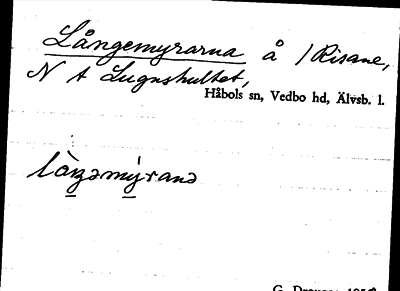 Långemyrarna å 1 Risane,
N t Lugnshultet,
Håbols sn, Vedbo hd, Älvsb. l.
làŋəmýranə